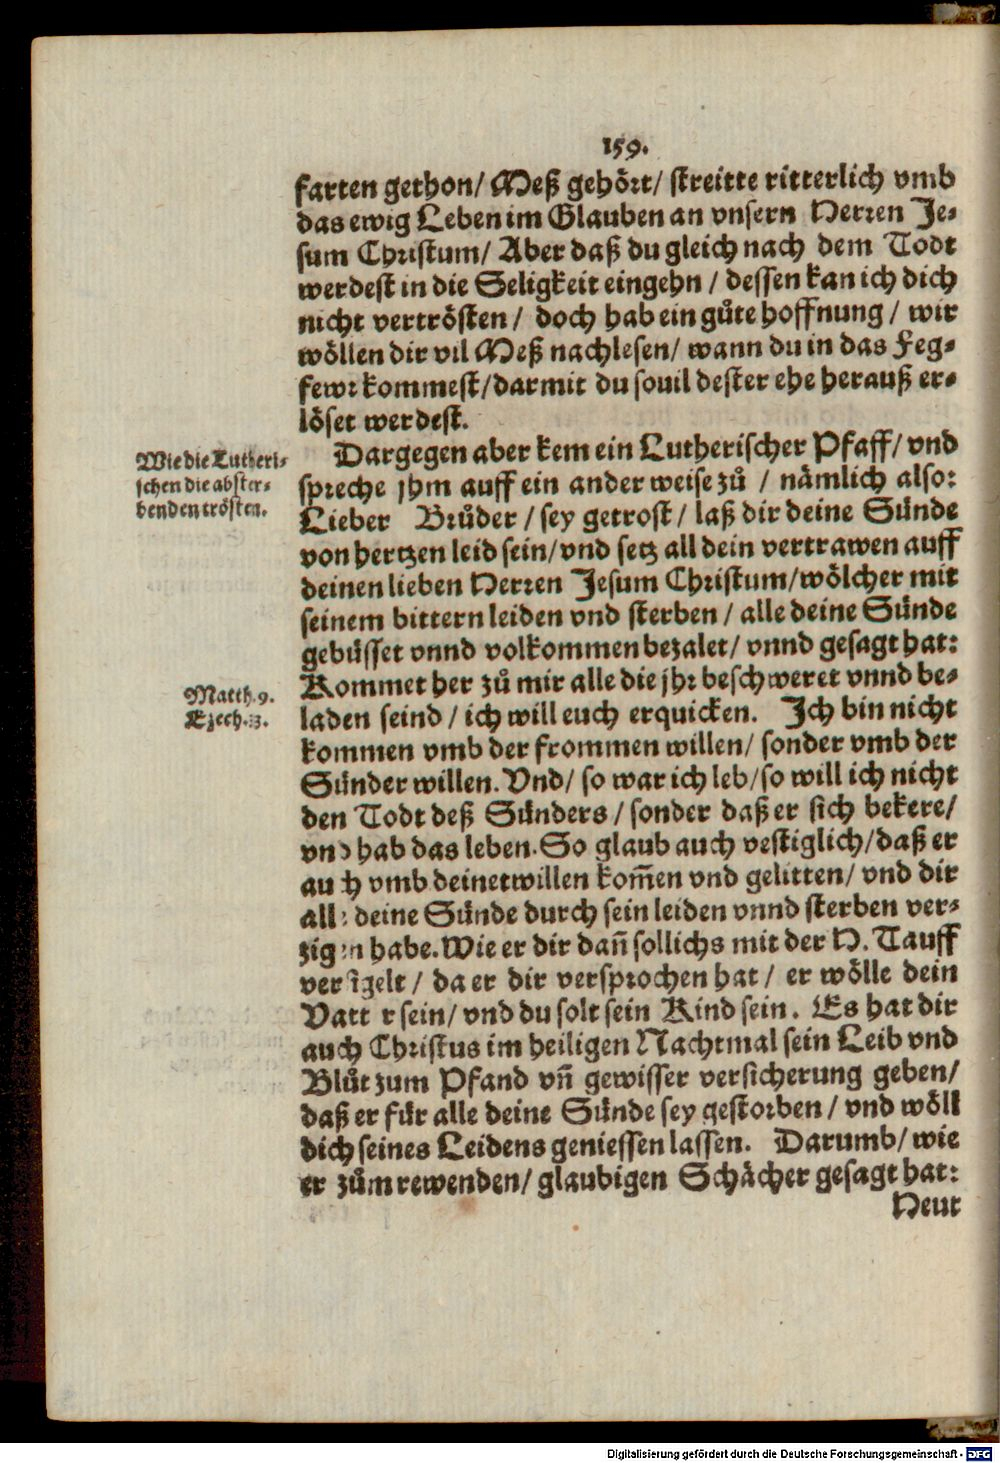 159.
farten gethon/ Meß gehört/ streitte ritterlich vmb
das ewig Leben im Glauben an vnsern Herren Je-
sum Christum/ Aber daß du gleich nach dem Todt
werdest in die Seligkeit eingehn / dessen kan ich dich
nicht vertrösten / doch hab ein gůte hoffnung / wir
wöllen dir vil Meß nachlesen/ wann du in das Feg-
fewr kommest/ darmit du souil dester ehe herauß er-
löset werdest.
Wie die Lutheri-
schen die abster-
benden trösten.
Dargegen aber kem ein Lutherischer Pfaff/ vnd
spreche jhm auff ein ander weise zů / nämlich also:
Lieber Brůder / sey getrost / laß dir deine Sünde
von hertzen leid sein/ vnd setz all dein vertrawen auff
deinen lieben Herren Jesum Christum/ wölcher mit
seinem bittern leiden vnd sterben / alle deine Sünde
gebüsset vnnd volkommen bezalet/ vnnd gesagt hat:
Matth. 9.
Ezech. 33.
Kommet her zů mir alle die jhr beschweret vnnd be-
laden seind / ich will euch erquicken. Ich bin nicht
kommen vmb der frommen willen/ sonder vmb der
Sünder willen. Vnd/ so war ich leb/ so will ich nicht
den Todt deß Sünders / sonder daß er sich bekere/
vnd hab das leben. So glaub auch vestiglich/ daß er
auch vmb deinetwillen kom̃en vnd gelitten/ vnd dir
alle deine Sünde durch sein leiden vnnd sterben ver-
zigen habe. Wie er dir dañ sollichs mit der H. Tauff
versigelt / da er dir versprochen hat / er wölle dein
Vatter sein/ vnd du solt sein Kind sein. Es hat dir
auch Christus im heiligen Nachtmal sein Leib vnd
Blůt zum Pfand vñ gewisser versicherung geben/
daß er für alle deine Sünde sey gestorben / vnd wöll
dich seines Leidens geniessen lassen. Darumb/ wie
er zům rewenden/ glaubigen Schächer gesagt hat:
Heut
Digitalisierung gefördert durch die Deutsche Forschungsgemeinschaft - DFG